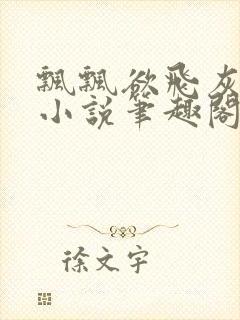 飘飘欲飞灰
小说笔趣阁
徐文宇